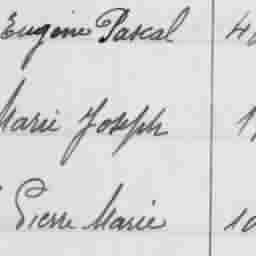 Eugène Pascal 4
Marie Joseph 1
Pierre Marie 10